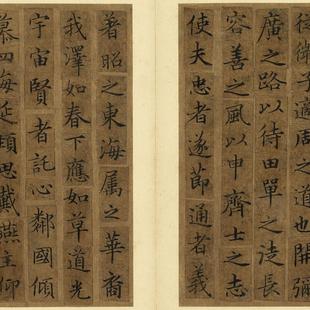 微子適周之道也開彌
廣之路以待田單之徒長
容善之風以申齊士之志
使夫忠者遂節通者義
著昭之東海属之華裔
我澤如春下應如草道光
宇宙賢者託心鄰國傾
慕四海延頸思戴燕主仰